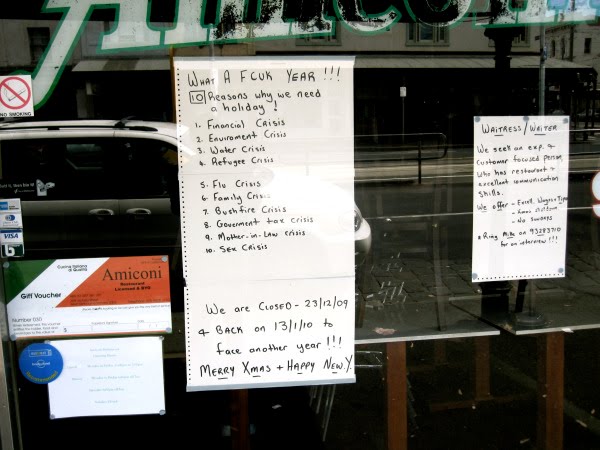 Amiconi
WHAT A FCUK YEAR !!!
10 Reasons why we need
a holiday!
1. Financial Crisis
2. Enviroment Crisis
3. Water Crisis
4. Refugee Crisis
5. Flu Crisis
6. Family Crisis
7. Bushfire Crisis
8. Goverment tax crisis
9. Mother-in-Law crisis
10. Sex Crisis
We are CLOSED - 23/12/09
& Back on 13/1/10 to
face another year !!!
MERRY XMAS + HAPPY NEW.Y.
WAITRESS/WAITER
We seek an exp. &
customer focused person,
who has restaurant &
excellent communication
skills.
We offer - Excell. Wages + Tips
- No Sundays
* Ring Mik on 93283710
for an interview !!!
NO SMOKING
VISA
Cucina Italiana
di Qualità
Amiconi
Restaurant
Licensed & BYO
Gift Voucher